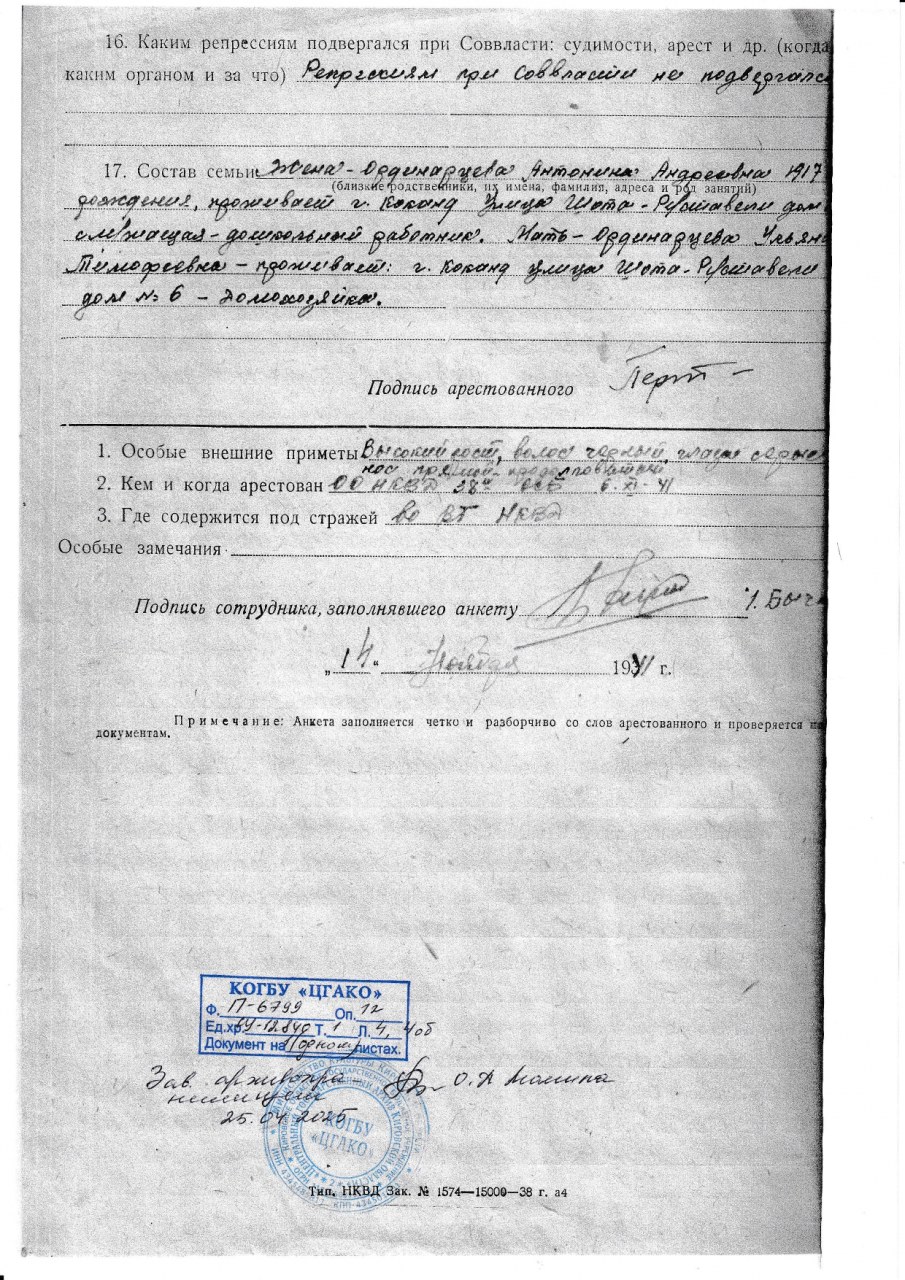 16. Каким репрессиям подвергался при Соввласти: судимости, арест и др. (когда
каким органом и за что) Репрессиям при Соввласти не подвергался
17. Состав семьи: Жена - Ординарцева Антонина Андреевна 1917
(близкие родственники, их имена, фамилия, адреса и род занятий)
рождения, проживает г. Коканд улица Шота-Руставели дом
служащая - дошкольный работник. Мать - Ординарцева Ульяна
Тимофеевна - проживает: г. Коканд улица Шота-Руставели
дом № 6 - домохозяйка.
Подпись арестованного
1. Особые внешние приметы Высокий рост, волос черный, глаза серые
нос прямой - продолговатый
2. Кем и когда арестован ОО НКВД 28й ОСБ 6.XI-41
3. Где содержится под стражей во ВТ НКВД
Особые замечания
Подпись сотрудника, заполнявшего анкету
„14“ Ноября 1941 г.
Примечание: Анкета заполняется четко и разборчиво со слов арестованного и проверяется по
документам.
КОГБУ «ЦГАКО»
Ф. П-6799 Оп. 12
Ед.хр. Т. 1 Л. 4, 4об
Документ на 1 одном листах.
Зав. архивохра
нилищем О.А
25.04.2025
КОГБУ
«ЦГАКО»
Тип. НКВД Зак. № 1574—15000—38 г. а4